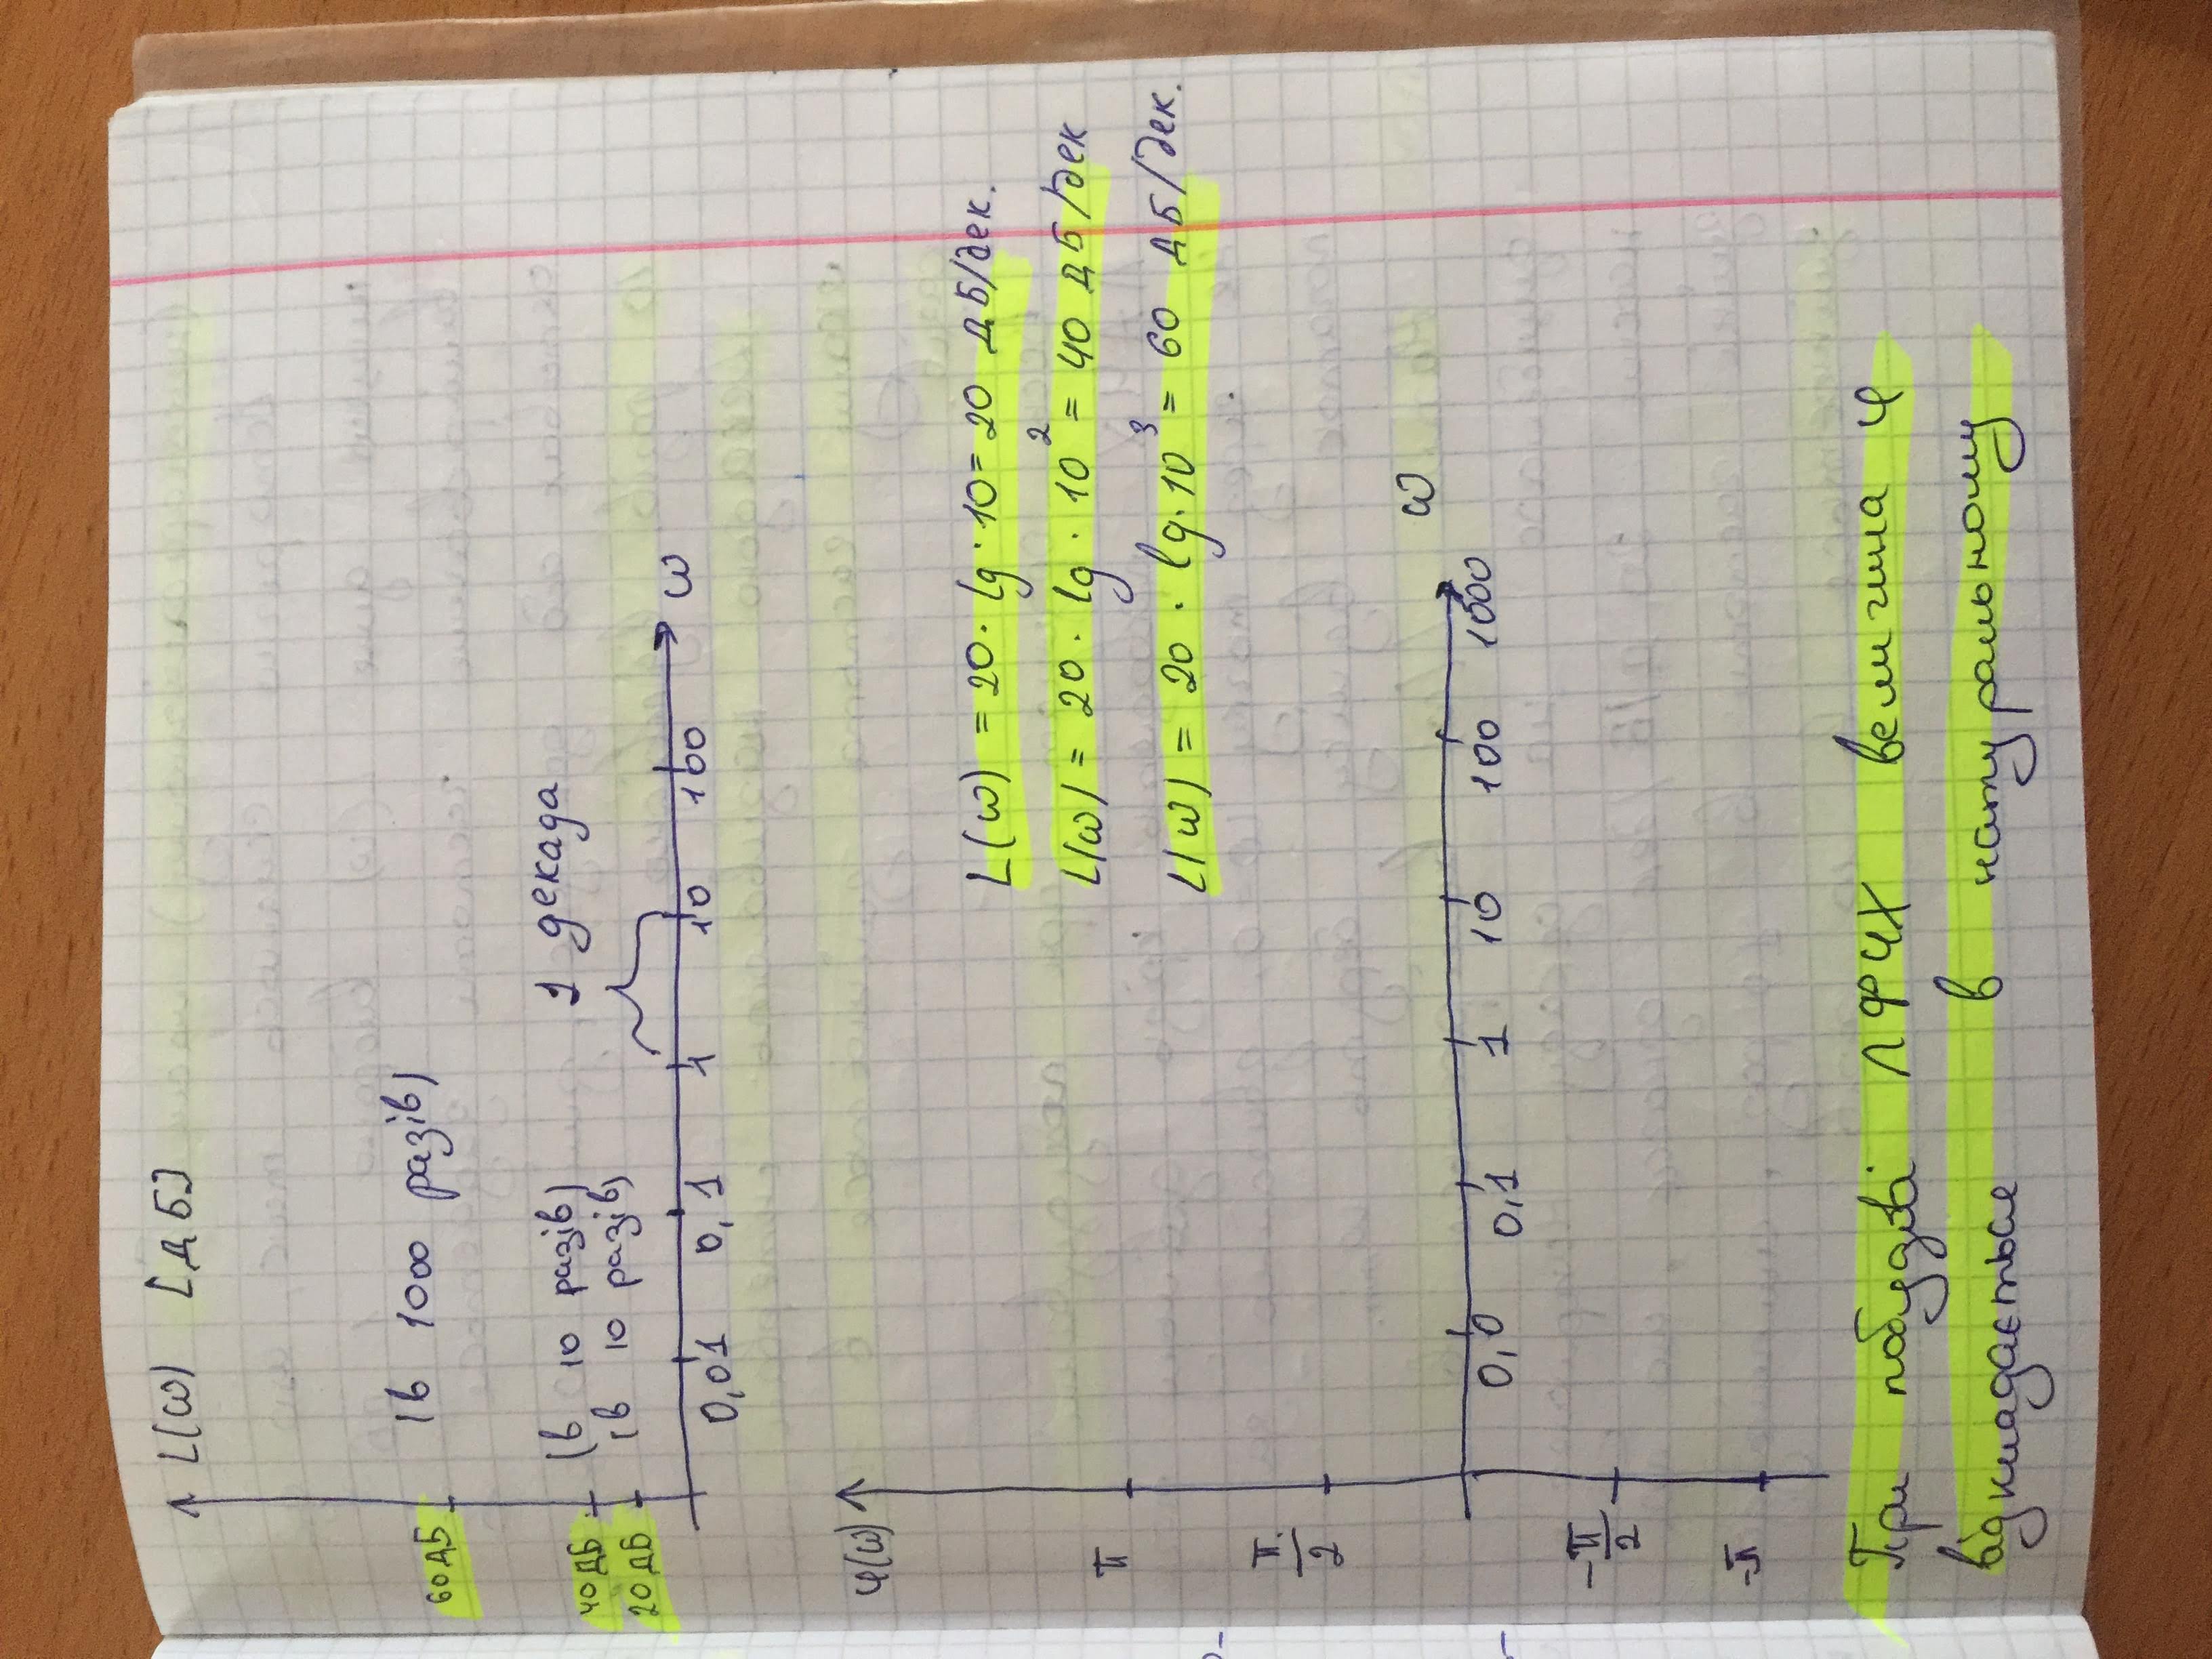 L(ω) [дБ]
60дБ (в 1000 разів)
1 декада
40дБ (в 10 разів)
20дБ (в 10 разів)
0,01 0,1 1 10 100 ω
φ(ω)
L(ω) = 20 · lg · 10 = 20 дБ/дек.
π
L(ω) = 20 · lg · 10² = 40 дБ/дек
L(ω) = 20 · lg · 10³ = 60 дБ/дек.
π/2
ω
0,0 0,1 1 10 100 1000
-π/2
-π
При побудові ЛФЧХ величина φ
відкладається в натуральному